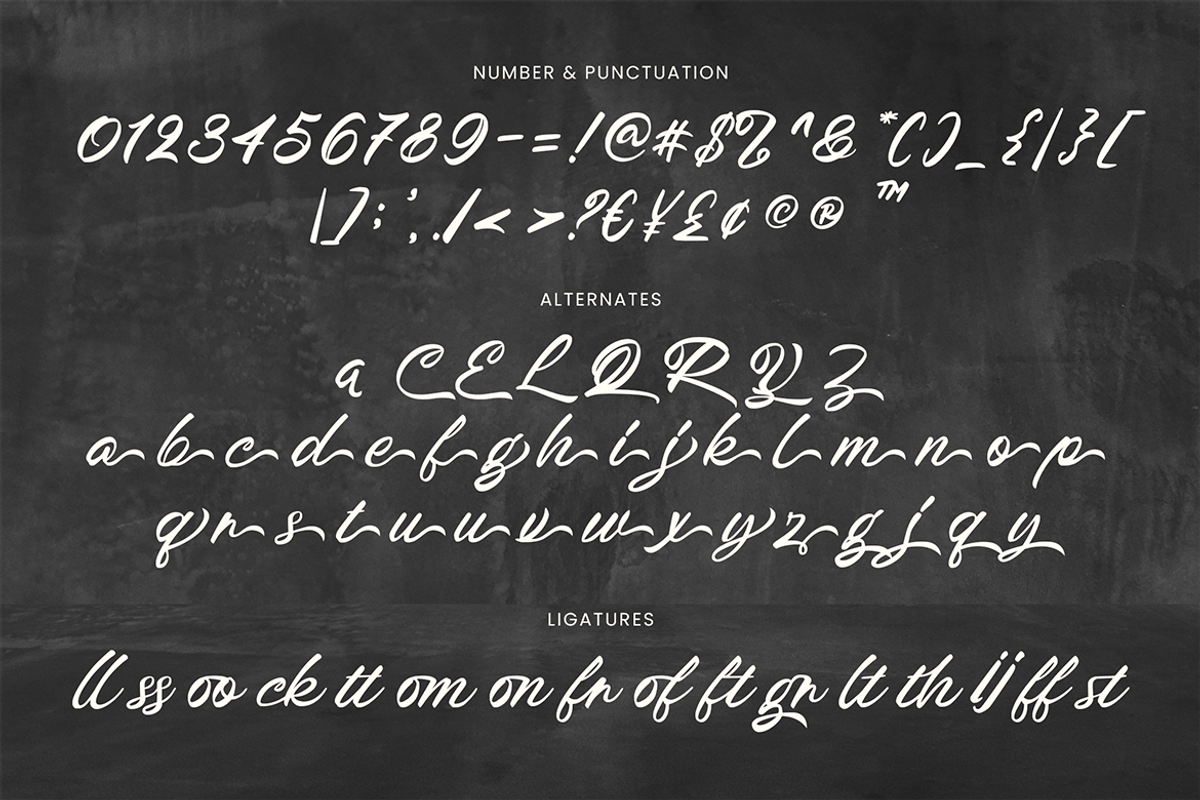 NUMBER & PUNCTUATION
0123456789-=!@#$%^&*()_{|}[
\];:',./<>?€¥£¢©®™
ALTERNATES
a C E L Q R Y Z
a b c d e f g h i j k l m n o p
q r s t u u v w x y z g j q y
LIGATURES
ll ss oo ck tt om on fr of ft gr lt th ij ff st